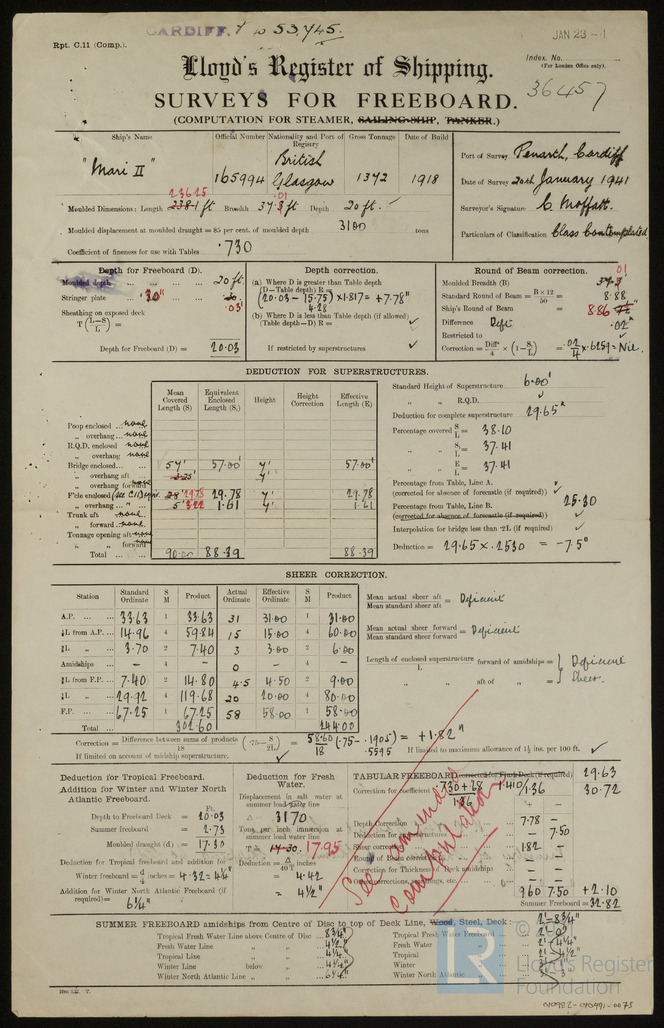 CARDIFF. 53,745.
JAN 23
Rpt. C.11 (Comp.).
Index. No.
(For London Office only).
36457
Lloyd's Register of Shipping.
SURVEYS FOR FREEBOARD.
(COMPUTATION FOR STEAMER, SAILING SHIP, TANKER.)
Ship's Name Official Number Nationality and Port of Registry Gross Tonnage Date of Build
"Mari II" 165994 British Glasgow 1372 1918
Port of Survey Penarth, Cardiff
Date of Survey 20th January 1941
Surveyor's Signature C. Moffatt.
Particulars of Classification Class Contemplated
236.25
Moulded Dimensions: Length 238.1 ft Breadth 37.3 ft Depth 20 ft.
Moulded displacement at moulded draught = 85 per cent. of moulded depth 3100 tons
Coefficient of fineness for use with Tables .730
Depth for Freeboard (D).
Moulded depth 20 ft.
Stringer plate .30"
.03'
Sheathing on exposed deck
T (L-S/L) =
Depth for Freeboard (D) = 20.03
Depth correction.
(a) Where D is greater than Table depth
(D—Table depth) R =
(20.03 - 15.75) × 1.817 = +7.78"
4.28
(b) Where D is less than Table depth (if allowed)
(Table depth—D) R =
If restricted by superstructures
Round of Beam correction.
Moulded Breadth (B) 37.3 01
Standard Round of Beam = B × 12 / 50 = 8.88
Ship's Round of Beam = 8.86
Difference Defi. .02"
Restricted to
Correction = Diff / 4 × (1 - S/L) = .02/4 × .6259 = Nil.
DEDUCTION FOR SUPERSTRUCTURES.
Mean Covered Length (S) Equivalent Enclosed Length (S₁) Height Height Correction Effective Length (E)
Poop enclosed none
" overhang none
R.Q.D. enclosed none
" overhang none
Bridge enclosed 57' 57.00' 7' 57.00'
" overhang aft
" overhang forward none
F'cle enclosed 28' 29.78 29.78 7' 29.78
" overhang 5' 3.22 1.61 7' 1.61
Trunk aft none
" forward none
Tonnage opening aft none
" " forward none
Total 90.00 88.39 88.39
Standard Height of Superstructure 6.00'
" " R.Q.D.
Deduction for complete superstructure 29.65"
Percentage covered S/L = 38.10
" S₁/L = 37.41
" E/L = 37.41
Percentage from Table, Line A.
(corrected for absence of forecastle (if required))
Percentage from Table, Line B. 25.30
(corrected for absence of forecastle (if required))
Interpolation for bridge less than ·2L (if required)
Deduction = 29.65 × .2530 = -7.5"
SHEER CORRECTION.
Station Standard Ordinate S M Product Actual Ordinate Effective Ordinate S M Product
A.P. 33.63 1 33.63 31 31.00 1 31.00
⅙L from A.P. 14.96 4 59.84 15 15.00 4 60.00
⅓L " 3.70 2 7.40 3 3.00 2 6.00
Amidships - 4 - 0 - 4 -
⅓L from F.P. 7.40 2 14.80 4.5 4.50 2 9.00
⅙L " 29.92 4 119.68 20 20.00 4 80.00
F.P. 67.25 1 67.25 58 58.00 1 58.00
Total 302.60 244.00
Mean actual sheer aft / Mean standard sheer aft = Deficient
Mean actual sheer forward / Mean standard sheer forward = Deficient
Length of enclosed superstructure / L forward of amidships = Deficient
" " aft of " = Sheer.
Correction = Difference between sums of products / 18 (·75 - S/2L) = 58.60 / 18 (.75 - .1905) = +1.82"
.5595
If limited on account of midship superstructure.
If limited to maximum allowance of 1½ ins. per 100 ft.
Deduction for Tropical Freeboard.
Addition for Winter and Winter North Atlantic Freeboard.
Ft.
Depth to Freeboard Deck = 20.03
Summer freeboard = 2.73
Moulded draught (d) = 17.30
Deduction for Tropical freeboard and addition for
Winter freeboard = d/4 inches = 4.32 = 4¼"
Addition for Winter North Atlantic Freeboard (if required) =
6¼"
Deduction for Fresh Water.
Displacement in salt water at summer load water line
Δ = 3170
Tons per inch immersion at summer load water line
T = 17.30 17.95
Deduction = Δ / 40 T inches
= 4.42
= 4½"
TABULAR FREEBOARD corrected for Flush Deck (if required) 29.63
Correction for coefficient .730 + .68 / 1.36 1.410 / 1.36 30.72
+ -
Depth Correction 7.78 -
Deduction for superstructures - 7.50
Sheer correction 1.82 -
Round of Beam correction - -
Correction for Thickness of Deck amidships - -
Other corrections, scantlings, etc.
9.60 7.50 +2.10
Summer Freeboard = 32.82
See amended computation
SUMMER FREEBOARD amidships from Centre of Disc to top of Deck Line, Wood, Steel, Deck: 2'-8¾"
Tropical Fresh Water Line above Centre of Disc 8¾"
Fresh Water Line " " 4½"
Tropical Line " " 4¼"
Winter Line below " 4¼"
Winter North Atlantic Line " " 6¼"
Tropical Fresh Water Freeboard 2'-0"
Fresh Water " 2'-4¼"
Tropical " 2'-4½"
Winter "
Winter North Atlantic "
LR
© Lloyd's Register
Foundation
010982-010991-0075